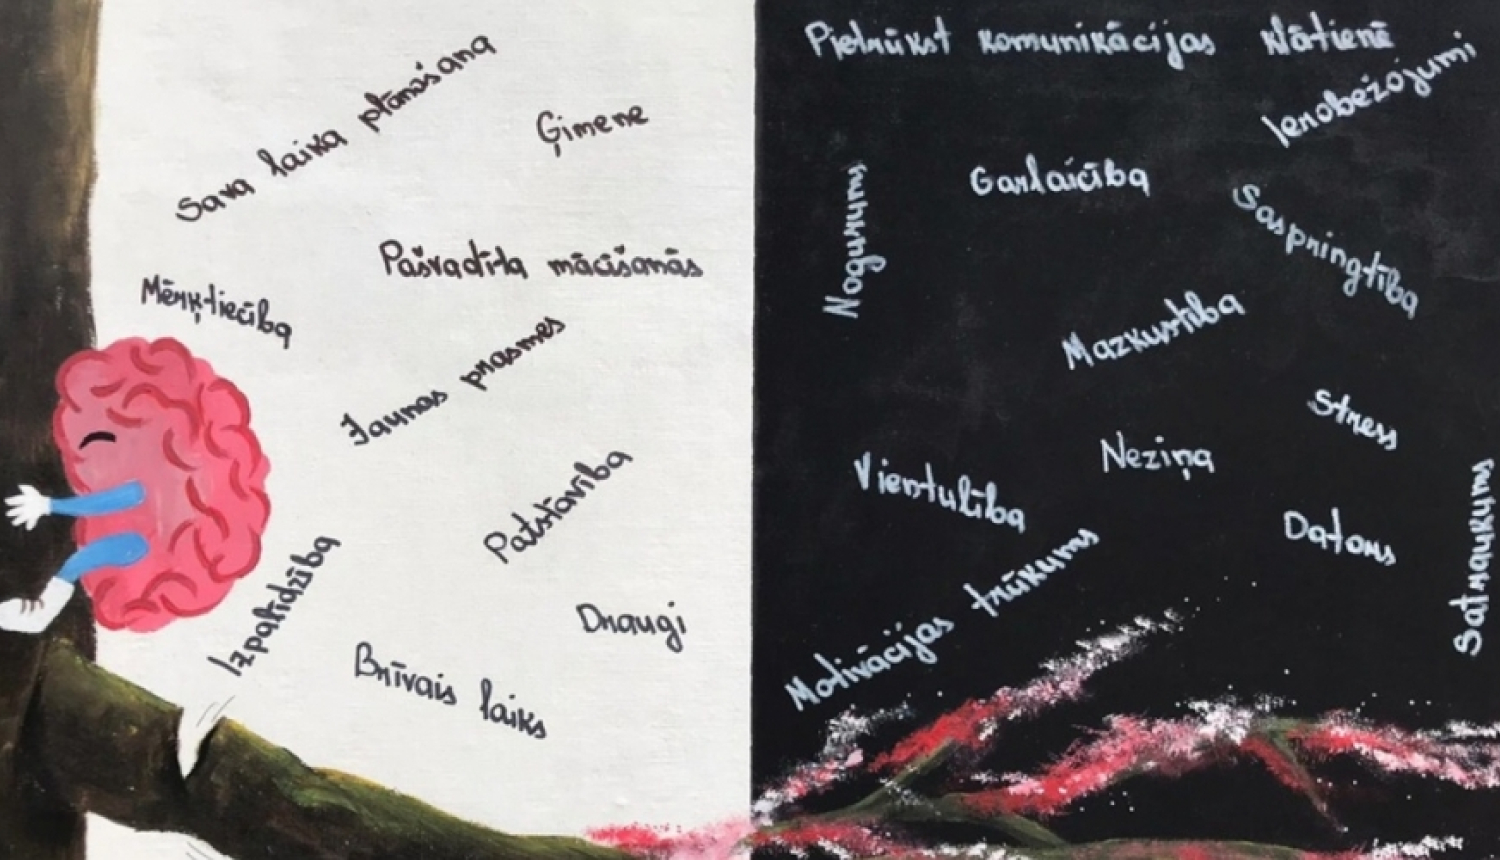 Sava laika plānošana
Ģimene
Pašvadīta mācīšanās
Mērķtiecība
Jaunas prasmes
Patstāvība
Izpalīdzība
Draugi
Brīvais laiks
Pietrūkst komunikācijas klātienē
Ierobežojumi
Garlaicība
Nogurums
Saspringtība
Mazkustība
Stress
Neziņa
Vientulība
Dators
Satraukums
Motivācijas trūkums